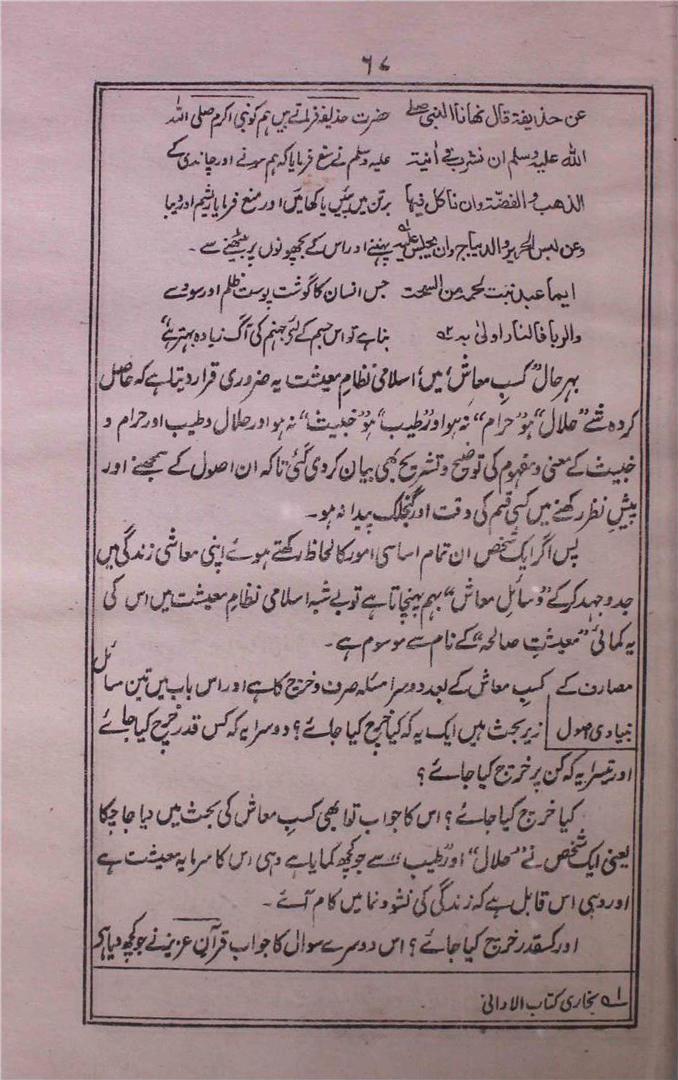 ۶۷
عن حذیفة قال نهانا النبی صلے حضرت حذیفہ فرماتے ہیں ہم کو نبی اکرم صلی اللہ
الله علیه وسلم ان نشرب فی اٰنیة علیہ وسلم نے منع فرمایا کہ ہم سونے اور چاندی کے
الذهب والفضّة وان ناکل فیها برتن میں پئیں یا کھائیں اور منع فرمایا ریشم اور دیبا
وعن لبس الحریر والدیباج وان یجلس علیه ۱ پہننے اور اس کے بچھونوں پر بیٹھنے سے۔
ایما عبد نبت لحمه من السحت جس انسان کا گوشت پوست ظلم اور سود سے
والربا فالنار اولیٰ به ۲ بنا ہے تو اس جسم کے لئے جہنم کی آگ زیادہ بہتر ہے
بہرحال "کسبِ معاش" میں اسلامی نظامِ معیشت یہ ضروری قرار دیتا ہے کہ حاصل
کردہ شے "حلال" ہو "حرام" نہ ہو اور "طیب" ہو "خبیث" نہ ہو اور حلال و طیب اور حرام و
خبیث کے معنی و مفہوم کی توضیح و تشریح بھی بیان کر دی گئی تاکہ ان اصول کے سمجھنے اور
پیشِ نظر رکھنے میں کسی قسم کی دقت اور گنجلک پیدا نہ ہو۔
پس اگر ایک شخص ان تمام اساسی امور کا لحاظ رکھتے ہوئے اپنی معاشی زندگی میں
جدوجہد کرکے "وسائلِ معاش" بہم پہنچاتا ہے تو بے شبہ اسلامی نظامِ معیشت میں اس کی
یہ کمائی "معیشتِ صالحہ" کے نام سے موسوم ہے۔
مصارف کے کسبِ معاش کے بعد دوسرا مسئلہ صرف و خرچ کا ہے اور اس باب میں تین مسائل
بنیادی اصول زیرِ بحث ہیں ایک یہ کہ کیا خرچ کیا جائے؟ دوسرا یہ کہ کس قدر خرچ کیا جائے
اور تیسرا یہ کہ کن پر خرچ کیا جائے؟
کیا خرچ کیا جائے؟ اس کا جواب تو ابھی کسبِ معاش کی بحث میں دیا جا چکا
یعنی ایک شخص نے "حلال" اور "طیب" سے جو کچھ کمایا ہے وہی اس کا سرمایۂ معیشت ہے
اور وہی اس قابل ہے کہ زندگی کی نشو و نما میں کام آئے۔
اور کسقدر خرچ کیا جائے؟ اس دوسرے سوال کا جواب قرآنِ عزیز نے جو کچھ دیا ہے
۱ بخاری کتاب الاوانی